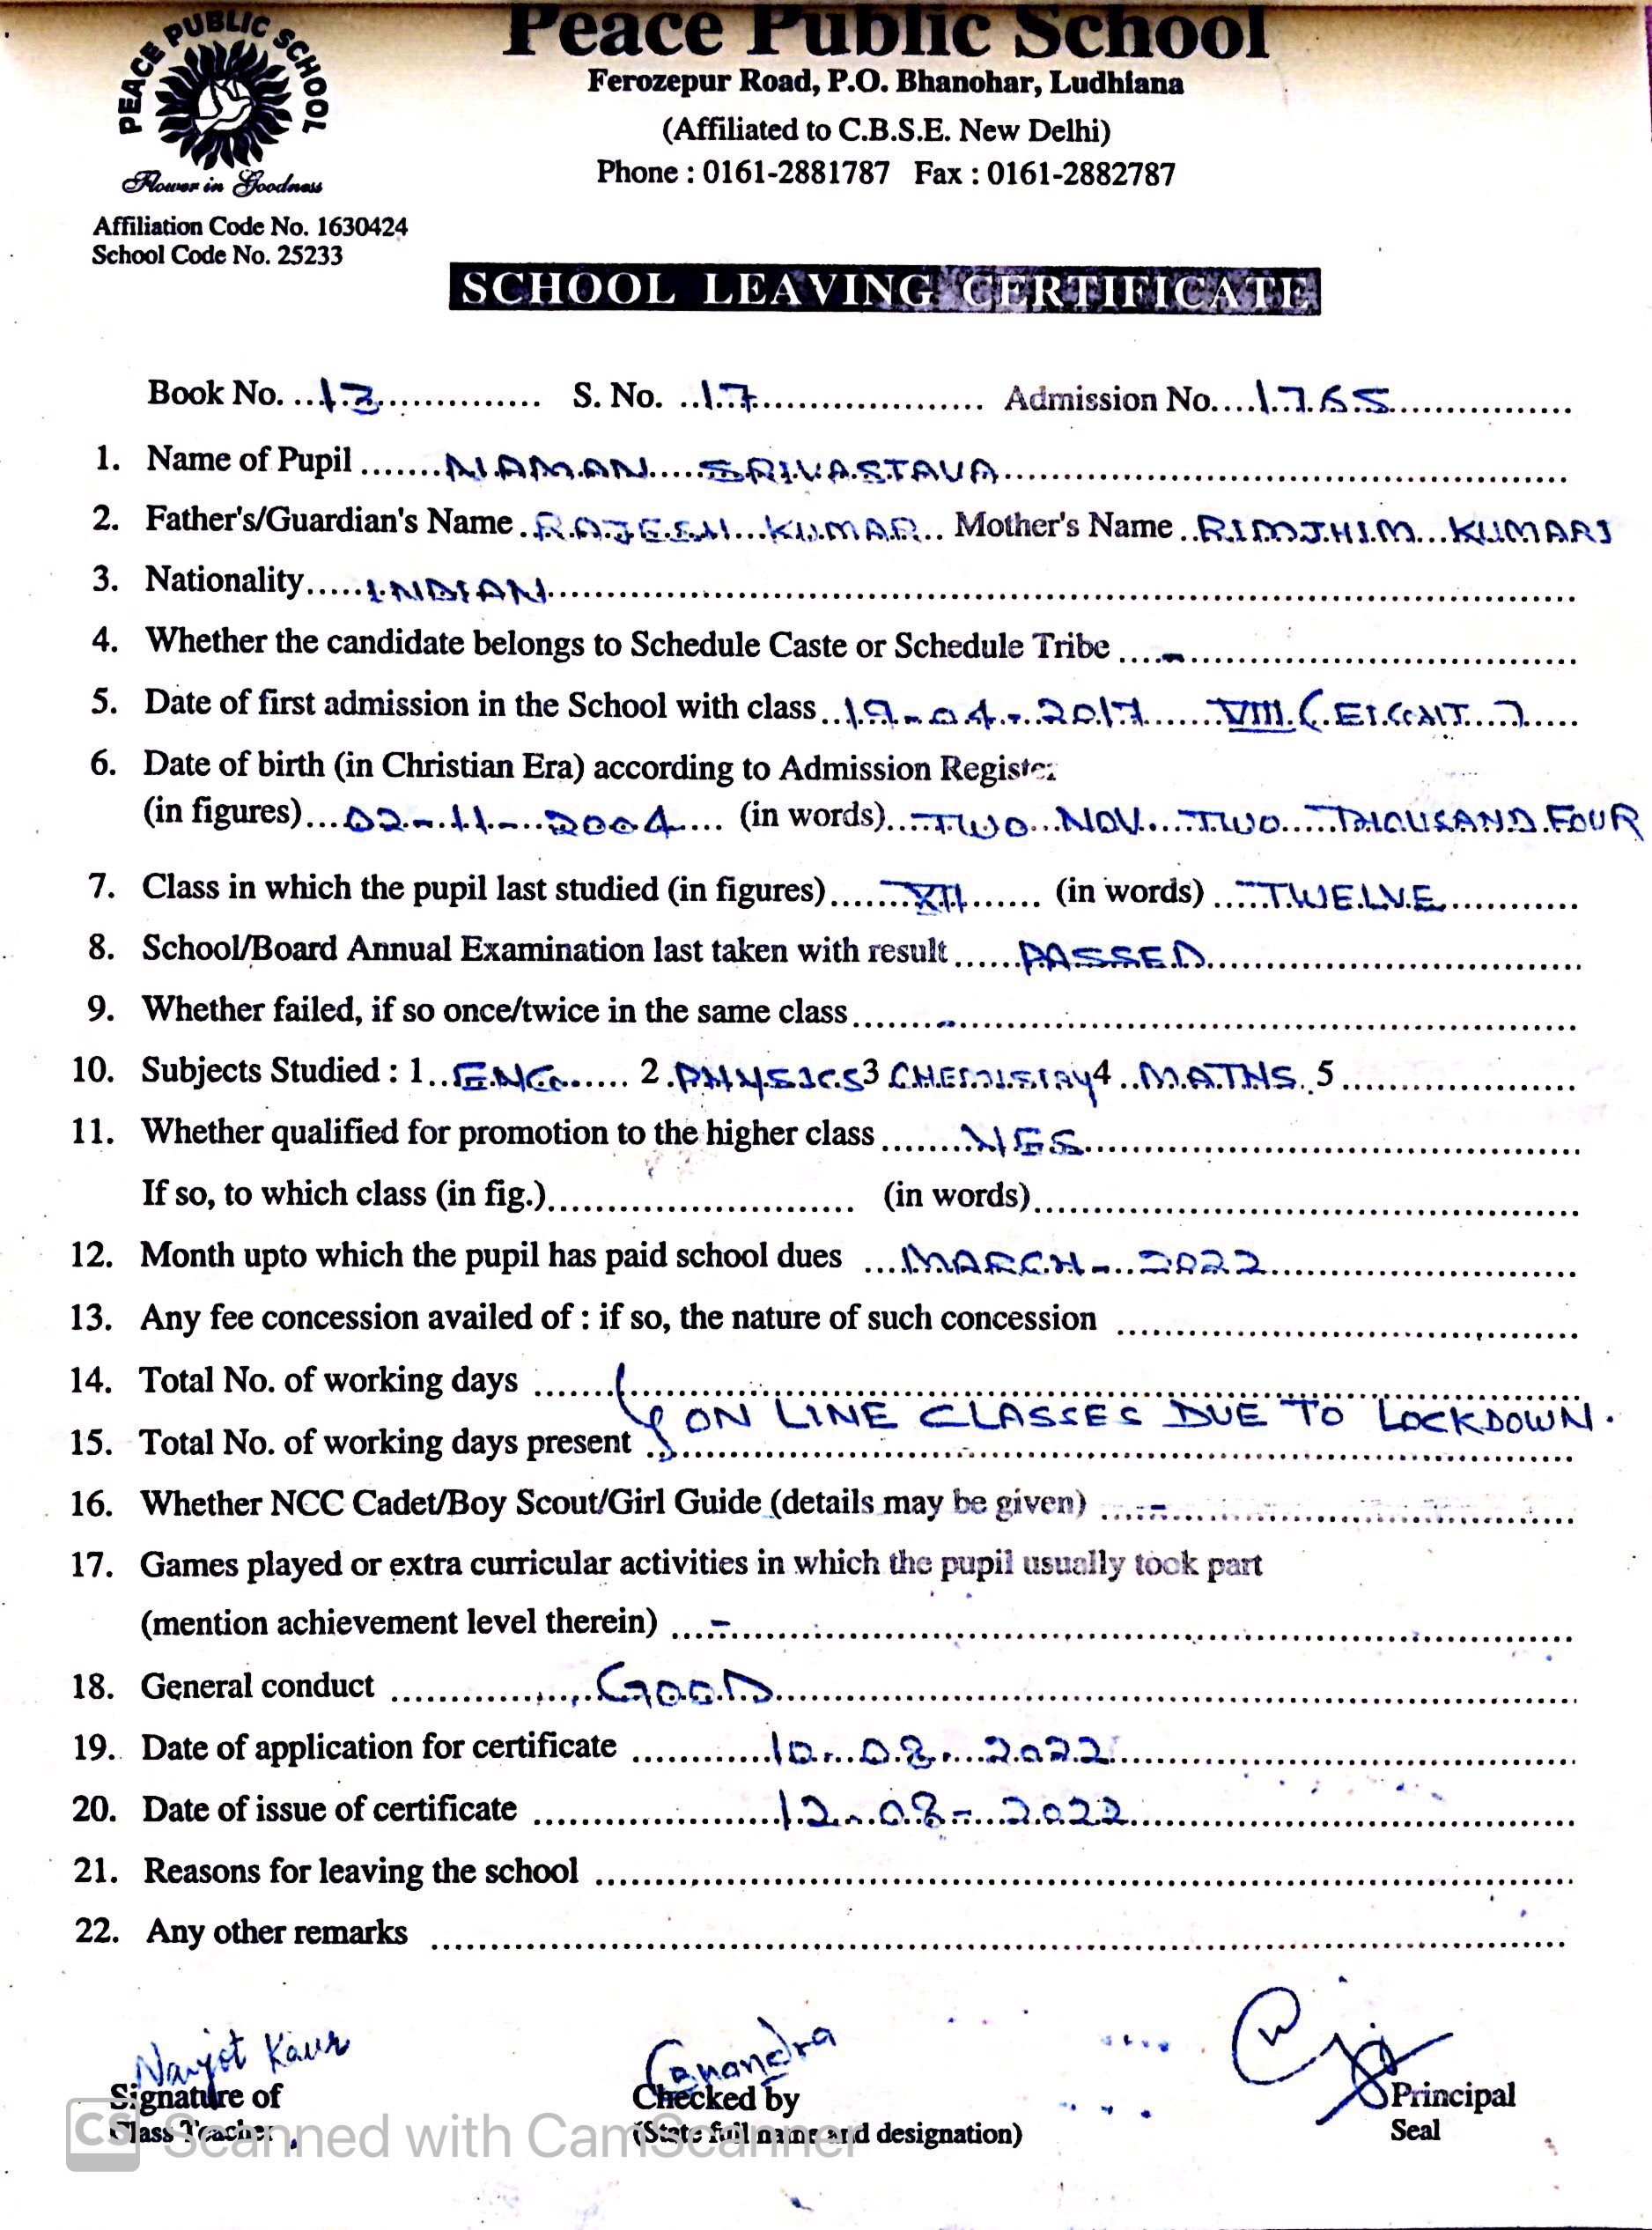 PEACE PUBLIC SCHOOL
Flower in Goodness
Affiliation Code No. 1630424
School Code No. 25233
Peace Public School
Ferozepur Road, P.O. Bhanohar, Ludhiana
(Affiliated to C.B.S.E. New Delhi)
Phone : 0161-2881787 Fax : 0161-2882787
SCHOOL LEAVING CERTIFICATE
Book No. 13 S. No. 17 Admission No. 1765
1. Name of Pupil NAMAN SRIVASTAVA
2. Father's/Guardian's Name RAJEEV KUMAR Mother's Name RIMJHIM KUMARI
3. Nationality INDIAN
4. Whether the candidate belongs to Schedule Caste or Schedule Tribe -
5. Date of first admission in the School with class 19-04-2017 VIII (EIGHT)
6. Date of birth (in Christian Era) according to Admission Register
(in figures) 02-11-2004 (in words) TWO NOV. TWO THOUSAND FOUR
7. Class in which the pupil last studied (in figures) XII (in words) TWELVE
8. School/Board Annual Examination last taken with result PASSED
9. Whether failed, if so once/twice in the same class -
10. Subjects Studied : 1 ENG 2 PHYSICS 3 CHEMISTRY 4 MATHS 5
11. Whether qualified for promotion to the higher class YES
If so, to which class (in fig.) (in words)
12. Month upto which the pupil has paid school dues MARCH - 2022
13. Any fee concession availed of : if so, the nature of such concession
14. Total No. of working days
ON LINE CLASSES DUE TO LOCKDOWN.
15. Total No. of working days present
16. Whether NCC Cadet/Boy Scout/Girl Guide (details may be given) -
17. Games played or extra curricular activities in which the pupil usually took part
(mention achievement level therein) -
18. General conduct GOOD
19. Date of application for certificate 10-08-2022
20. Date of issue of certificate 12-08-2022
21. Reasons for leaving the school
22. Any other remarks
Navjot Kaur
Signature of Checked by Principal
Class Teacher (State full name and designation) Seal
CS Scanned with CamScanner